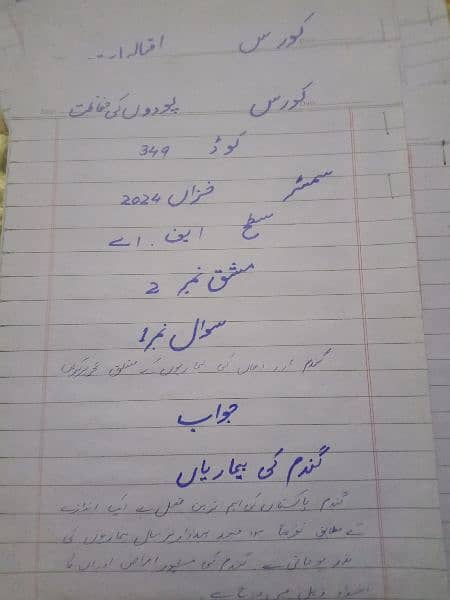 کورس
کورس پودوں کی حفاظت
کوڈ 349
سمسٹر خزاں 2024
سطح ایف۔اے
مشق نمبر 2
سوال نمبر 1
گندم اور دھان کی بیماریوں کے متعلق تحریر کریں
جواب
گندم کی بیماریاں
گندم پاکستان کی اہم ترین فصل ہے ایک اندازے
کے مطابق تقریباً پیداوار ہر سال بیماریوں کی
نذر ہو جاتی ہے۔ گندم کی مشہور امراض اور ان کا
ذیل میں درج ہے